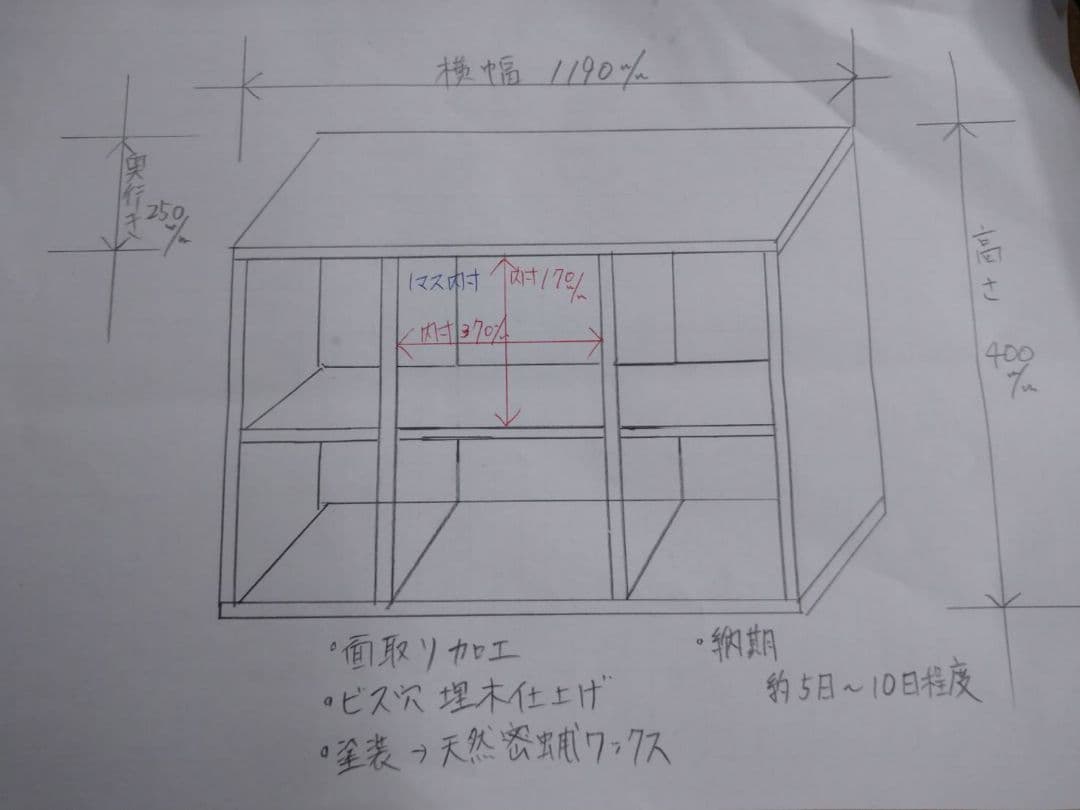 横幅 1190m/m
奥行き 250m/m
高さ 400m/m
1マス内寸
内寸170m/m
内寸370m/m
・面取り加工
・ビス穴 埋木仕上げ
・塗装→天然密蝋ワックス
・納期
約5日〜10日程度